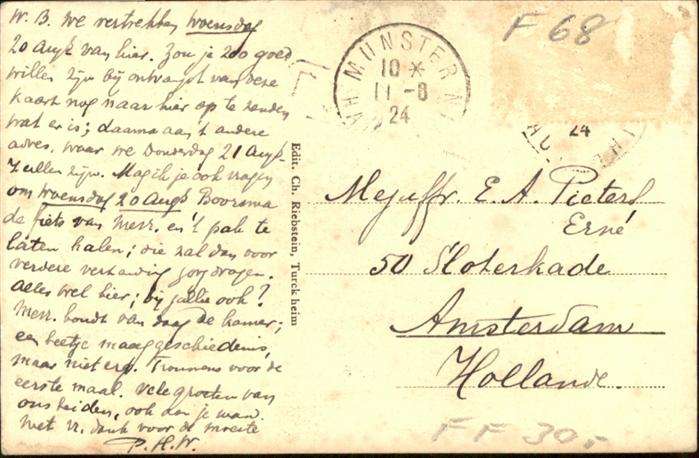 W. B. We vertrekken Woensdag
20 Aug. van hier. Zou je zoo goed
willen zijn bij ontvangst van deze
kaart nog naar hier op te zenden
wat er is; daarna aan 't andere
adres, waar we Donderdag 21 Aug.
zullen zijn. Mag ik je ook vragen
om Woensdag 20 Aug. Boorsma
de fiets van Mevr. en 't pak te
laten halen; die zal dan voor
verdere verhanding zorg dragen.
Alles wel hier; bij jullie ook?
Mevr. houdt van daag de kamer;
een beetje maaggeschiedenis,
maar niet erg. Trouwens voor de
eerste maal. Vele groeten van
ons beiden, ook aan je man.
Met vr. dank voor de moeite
P. H. W.
Edit. Ch. Riebstein, Turckheim
MUNSTER
10 *
11 - 8
24
F 68
24
Mejuffr. E. A. Pieters
Erné
50 Sloterkade
Amsterdam
Hollande.
FF 30,-